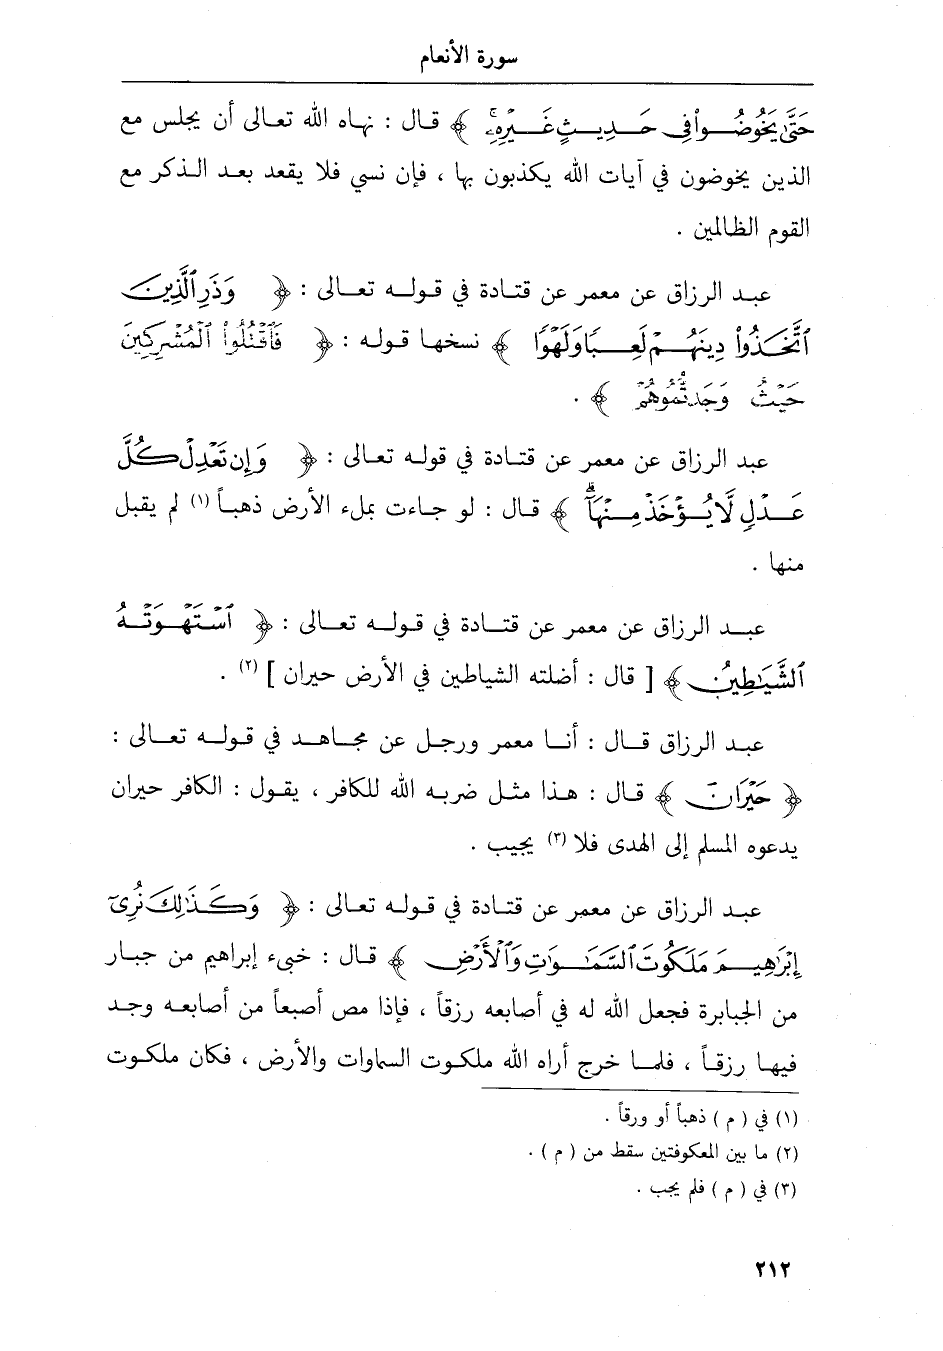 سورة الأنعام
حَتَّىٰ يَخُوضُوا۟ فِى حَدِيثٍ غَيْرِهِۦ ﴾ قال : نهاه الله تعالى أن يجلس مع
الذين يخوضون في آيات الله يكذبون بها ، فإن نسي فلا يقعد بعد الذكر مع
القوم الظالمين .
عبد الرزاق عن معمر عن قتادة في قوله تعالى : ﴿ وَذَرِ ٱلَّذِينَ
ٱتَّخَذُوا۟ دِينَهُمْ لَعِبًا وَلَهْوًا ﴾ نسخها قوله : ﴿ فَٱقْتُلُوا۟ ٱلْمُشْرِكِينَ
حَيْثُ وَجَدتُّمُوهُمْ ﴾ .
عبد الرزاق عن معمر عن قتادة في قوله تعالى : ﴿ وَإِن تَعْدِلْ كُلَّ
عَدْلٍ لَّا يُؤْخَذْ مِنْهَآ ۗ ﴾ قال : لو جاءت بملء الأرض ذهباً (١) لم يقبل
منها .
عبد الرزاق عن معمر عن قتادة في قوله تعالى : ﴿ ٱسْتَهْوَتْهُ
ٱلشَّيَٰطِينُ ﴾ [ قال : أضلته الشياطين في الأرض حيران ] (٢) .
عبد الرزاق قال : أنا معمر ورجل عن مجاهد في قوله تعالى :
﴿ حَيْرَانَ ﴾ قال : هذا مثل ضربه الله للكافر ، يقول : الكافر حيران
يدعوه المسلم إلى الهدى فلا (٣) يجيب .
عبد الرزاق عن معمر عن قتادة في قوله تعالى : ﴿ وَكَذَٰلِكَ نُرِىٓ
إِبْرَٰهِيمَ مَلَكُوتَ ٱلسَّمَٰوَٰتِ وَٱلْأَرْضِ ﴾ قال : خبىء إبراهيم من جبار
من الجبابرة فجعل الله له في أصابعه رزقاً ، فإذا مص أصبعاً من أصابعه وجد
فيها رزقاً ، فلما خرج أراه الله ملكوت السماوات والأرض ، فكان ملكوت
(١) في ( م ) ذهباً أو ورقاً .
(٢) ما بين المعكوفتين سقط من ( م ) .
(٣) في ( م ) فلم يجب .
٢١٢